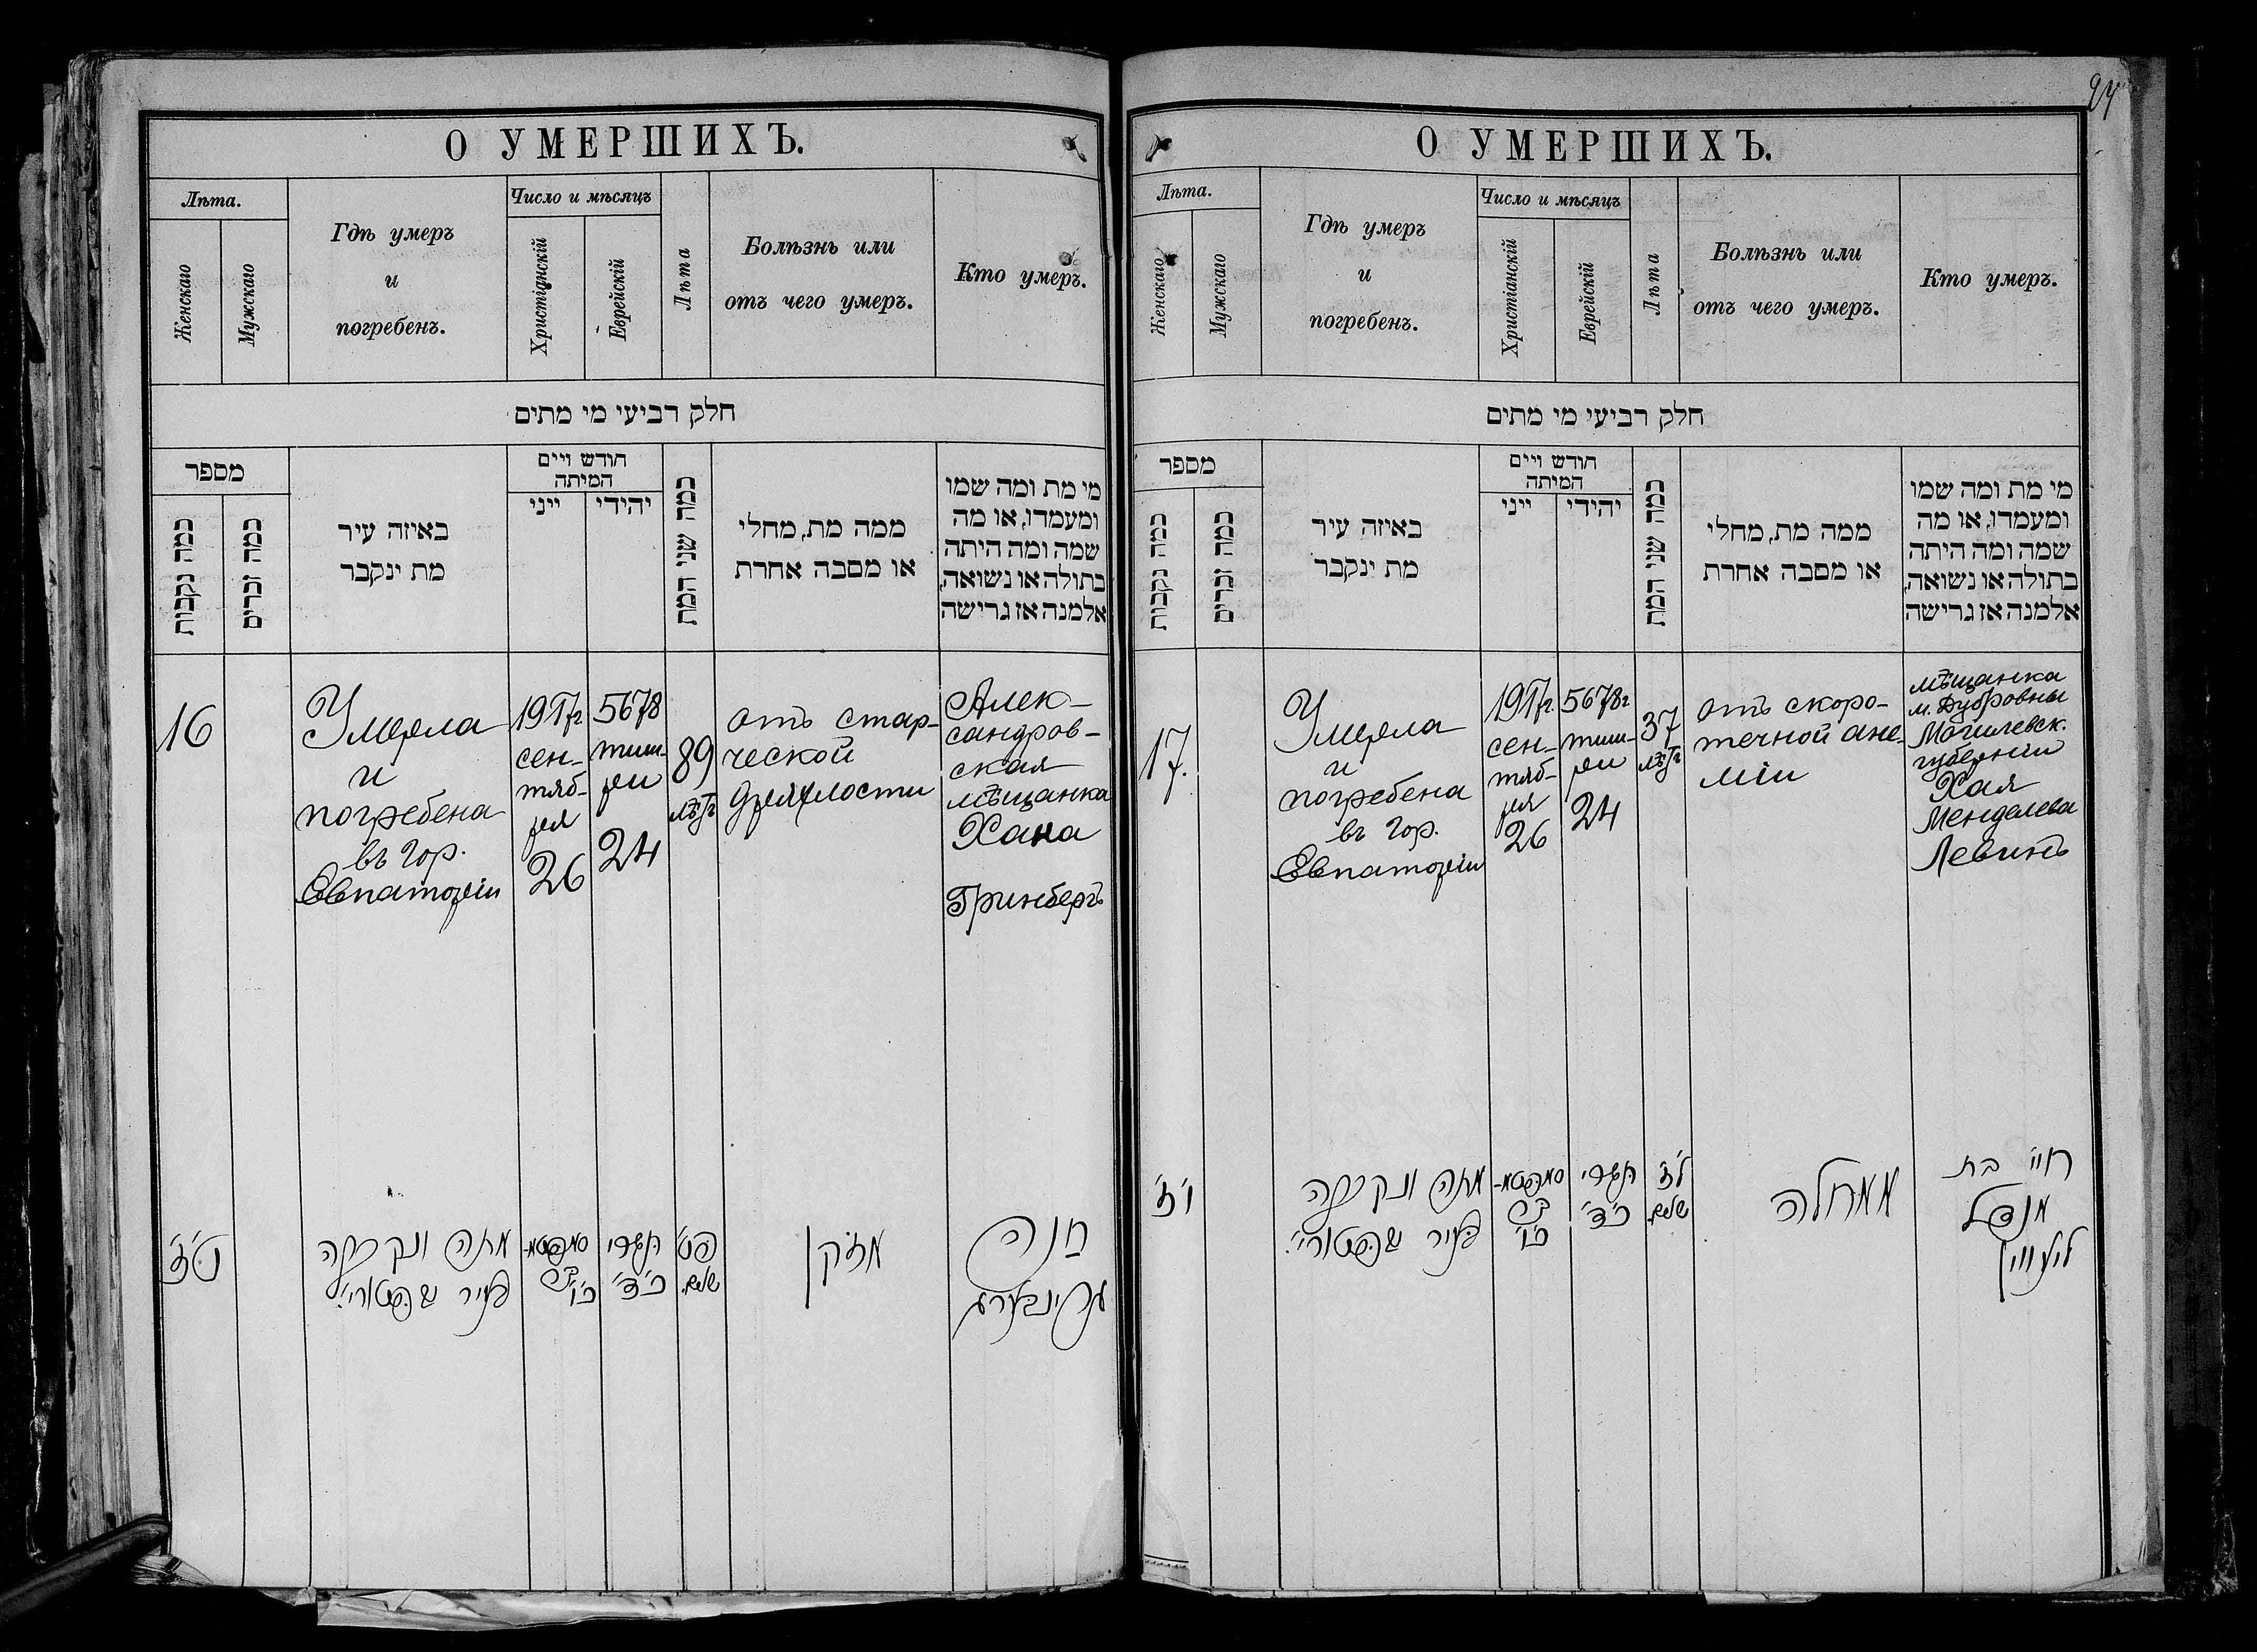 О УМЕРШИХЪ.
Лѣта.
Женскаго
Мужскаго
Гдѣ умеръ
и
погребенъ.
Число и мѣсяцъ
Христіанскій
Еврейскій
Лѣта
Болѣзнь или
отъ чего умеръ.
Кто умеръ.
חלק רביעי מי מתים
מספר
כמה נקבות
כמה זכרים
באיזה עיר
מת ינקבר
חודש ויים
המיתה
ייני
יהידי
כמה שני המת
ממה מת, מחלי
או מסבה אחרת
מי מת ומה שמו
ומעמדו, או מה
שמה ומה היתה
בתולה או נשואה,
אלמנה אז גרישה
16
Умерла
и
погребена
въ гор.
Евпаторіи
1917г
сен-
тяб-
ря
26
5678
тиш-
ри
24
89
лѣтъ
отъ стар-
ческой
дряхлости
Алек-
сандров-
ская
мѣщанка
Хана
Гринбергъ
ט״ז
מתה ונקברה
בעיר
כ״ו
תשרי
כ״ד
פט
שנים
מזקן
חנה
גרינבערג
24
О УМЕРШИХЪ.
Лѣта.
Женскаго
Мужскаго
Гдѣ умеръ
и
погребенъ.
Число и мѣсяцъ
Христіанскій
Еврейскій
Лѣта
Болѣзнь или
отъ чего умеръ.
Кто умеръ.
חלק רביעי מי מתים
מספר
כמה נקבות
כמה זכרים
באיזה עיר
מת ינקבר
חודש ויים
המיתה
ייני
יהידי
כמה שני המת
ממה מת, מחלי
או מסבה אחרת
מי מת ומה שמו
ומעמדו, או מה
שמה ומה היתה
בתולה או נשואה,
אלמנה אז גרישה
17.
Умерла
и
погребена
въ гор.
Евпаторіи
1917г.
сен-
тяб-
ря
26
5678г
тиш-
ри
24
37
лѣтъ
отъ скоро-
течной ане-
міи
мѣщанка
м. Дубровны
Могилевск.
губерніи
Хая
Менделева
Левинъ
י״ז
מתה ונקברה
בעיר
כ״ו
תשרי
כ״ד
ל״ז
שנים
ממחלה
חי׳ בת
מנדל
לעווין